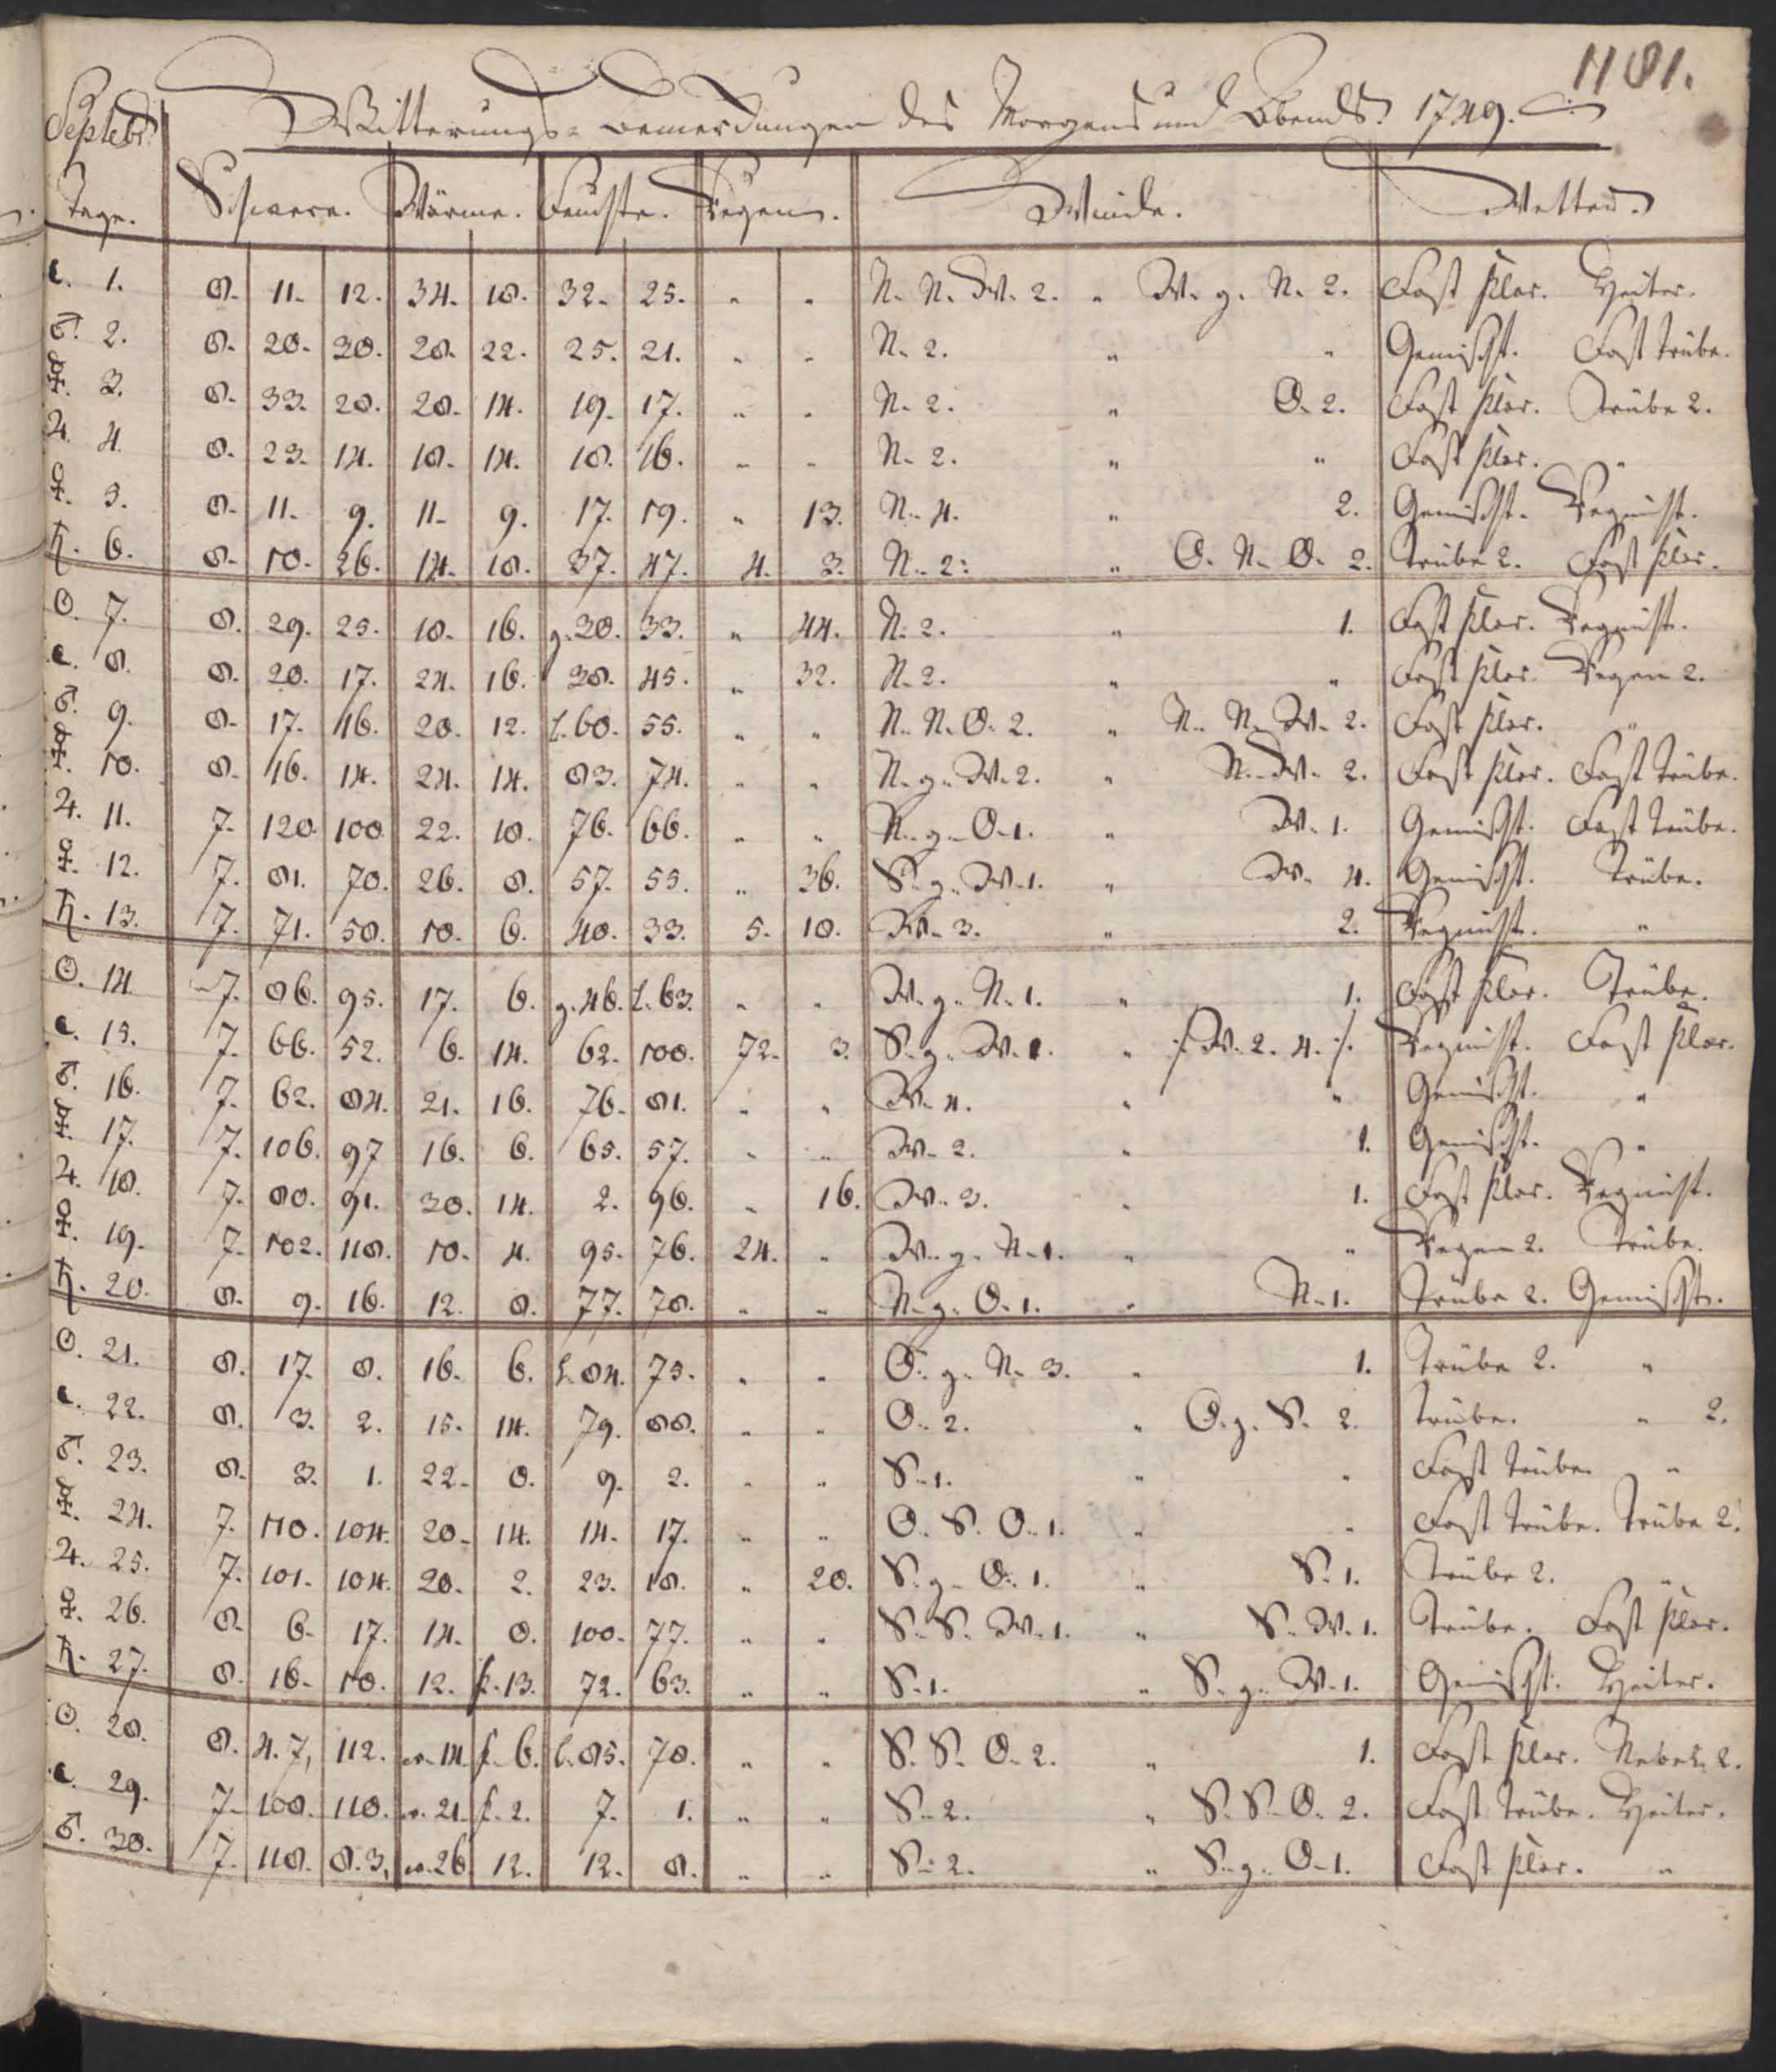 1181.
Septebr. Witterungs-Bemerckungen des Morgens und Abends. 1749.
Tage. Schwere. Wärme. Feuchte. Regen. Winde. Wetter.
☾. 1. 8. 11. 12. 34. 18. 32. 25. " " N. N. W. 2. " W. g. N. 2. Fast klar. Heiter.
♂. 2. 8. 20. 30. 28. 22. 25. 21. " " N. 2. " " Gemischt. Fast trübe.
☿. 3. 8. 33. 28. 28. 14. 19. 17. " " N. 2. " O. 2. Fast klar. Trübe 2.
♃. 4. 8. 23. 14. 18. 14. 18. 16. " " N. 2. " " Fast klar. "
♀. 5. 8. 11. 9. 11. 9. 17. 19. " 13. N. 4. " 2. Gemischt. Regnicht.
♄. 6. 8. 10. 26. 14. 18. 37. 47. 4. 3. N. 2. " O. N. O. 2. Trübe 2. Fast klar.
☉. 7. 8. 29. 25. 18. 16. g. 30. 33. " 44. N. 2. " 1. Fast klar. Regnicht.
☾. 8. 8. 20. 17. 24. 16. 38. 45. " 32. N. 2. " " Fast klar. Regen 2.
♂. 9. 8. 17. 16. 20. 12. l. 60. 55. " " N. N. O. 2. " N. N. W. 2. Fast klar. "
☿. 10. 8. 16. 14. 24. 14. 83. 74. " " N. g. W. 2. " N. W. 2. Fast klar. Fast trübe.
♃. 11. 7. 120. 100. 22. 18. 76. 66. " " N. g. O. 1. " W. 1. Gemischt. Fast trübe.
♀. 12. 7. 81. 70. 26. 8. 57. 55. " 36. S. g. W. 1. " W. 4. Gemischt. Trübe.
♄. 13. 7. 71. 58. 10. 6. 40. 33. 5. 18. W. 3. " 2. Regnicht. "
☉. 14. 7. 86. 95. 17. 6. g. 46. l. 63. " " W. g. N. 1. " 1. Fast klar. Trübe.
☾. 15. 7. 66. 52. 6. 14. 62. 100. 72. 3. S. g. W. 1. " /: W. 2. 4. :/ Regnicht. Fast klar.
♂. 16. 7. 62. 84. 21. 16. 76. 81. " " W. 4. " " Gemischt. "
☿. 17. 7. 106. 97. 16. 6. 65. 57. " " W. 2. " 1. Gemischt. "
♃. 18. 7. 80. 91. 30. 14. 2. 96. " 16. W. 3. " 1. Fast klar. Regnicht.
♀. 19. 7. 102. 118. 10. 4. 95. 76. 24. " W. g. N. 1. " " Regen 2. Trübe.
♄. 20. 8. 9. 16. 12. 8. 77. 78. " " N. g. O. 1. " N. 1. Trübe 2. Gemischt.
☉. 21. 8. 17. 8. 16. 6. l. 84. 75. " " O. g. N. 3. " 1. Trübe 2. "
☾. 22. 8. 3. 2. 15. 14. 79. 88. " " O. 2. " O. g. S. 2. Trübe. " 2.
♂. 23. 8. 3. 1. 22. 0. 9. 2. " " S. 1. " " Fast trübe. "
☿. 24. 7. 110. 104. 20. 14. 14. 17. " " O. S. O. 1. " " Fast trübe. Trübe 2.
♃. 25. 7. 101. 104. 20. 2. 23. 18. " 20. S. g. O. 1. " S. 1. Trübe 2. "
♀. 26. 8. 6. 17. 14. 0. 100. 77. " " S. S. W. 1. " S. W. 1. Trübe. Fast klar.
♄. 27. 8. 16. 10. 12. k. 13. 72. 63. " " S. 1. " S. g. W. 1. Gemischt. Heiter.
☉. 28. 8. 4. 7, 112. w. 14. k. 6. l. 85. 78. " " S. S. O. 2. " 1. Fast klar. Nebel 2.
☾. 29. 7. 108. 110. w. 21. k. 2. 7. 1. " " S. 2. " S. S. O. 2. Fast trübe. Heiter.
♂. 30. 7. 118. 8. 3, w. 26. 12. 12. 8. " " S. 2. " S. g. O. 1. Fast klar. "